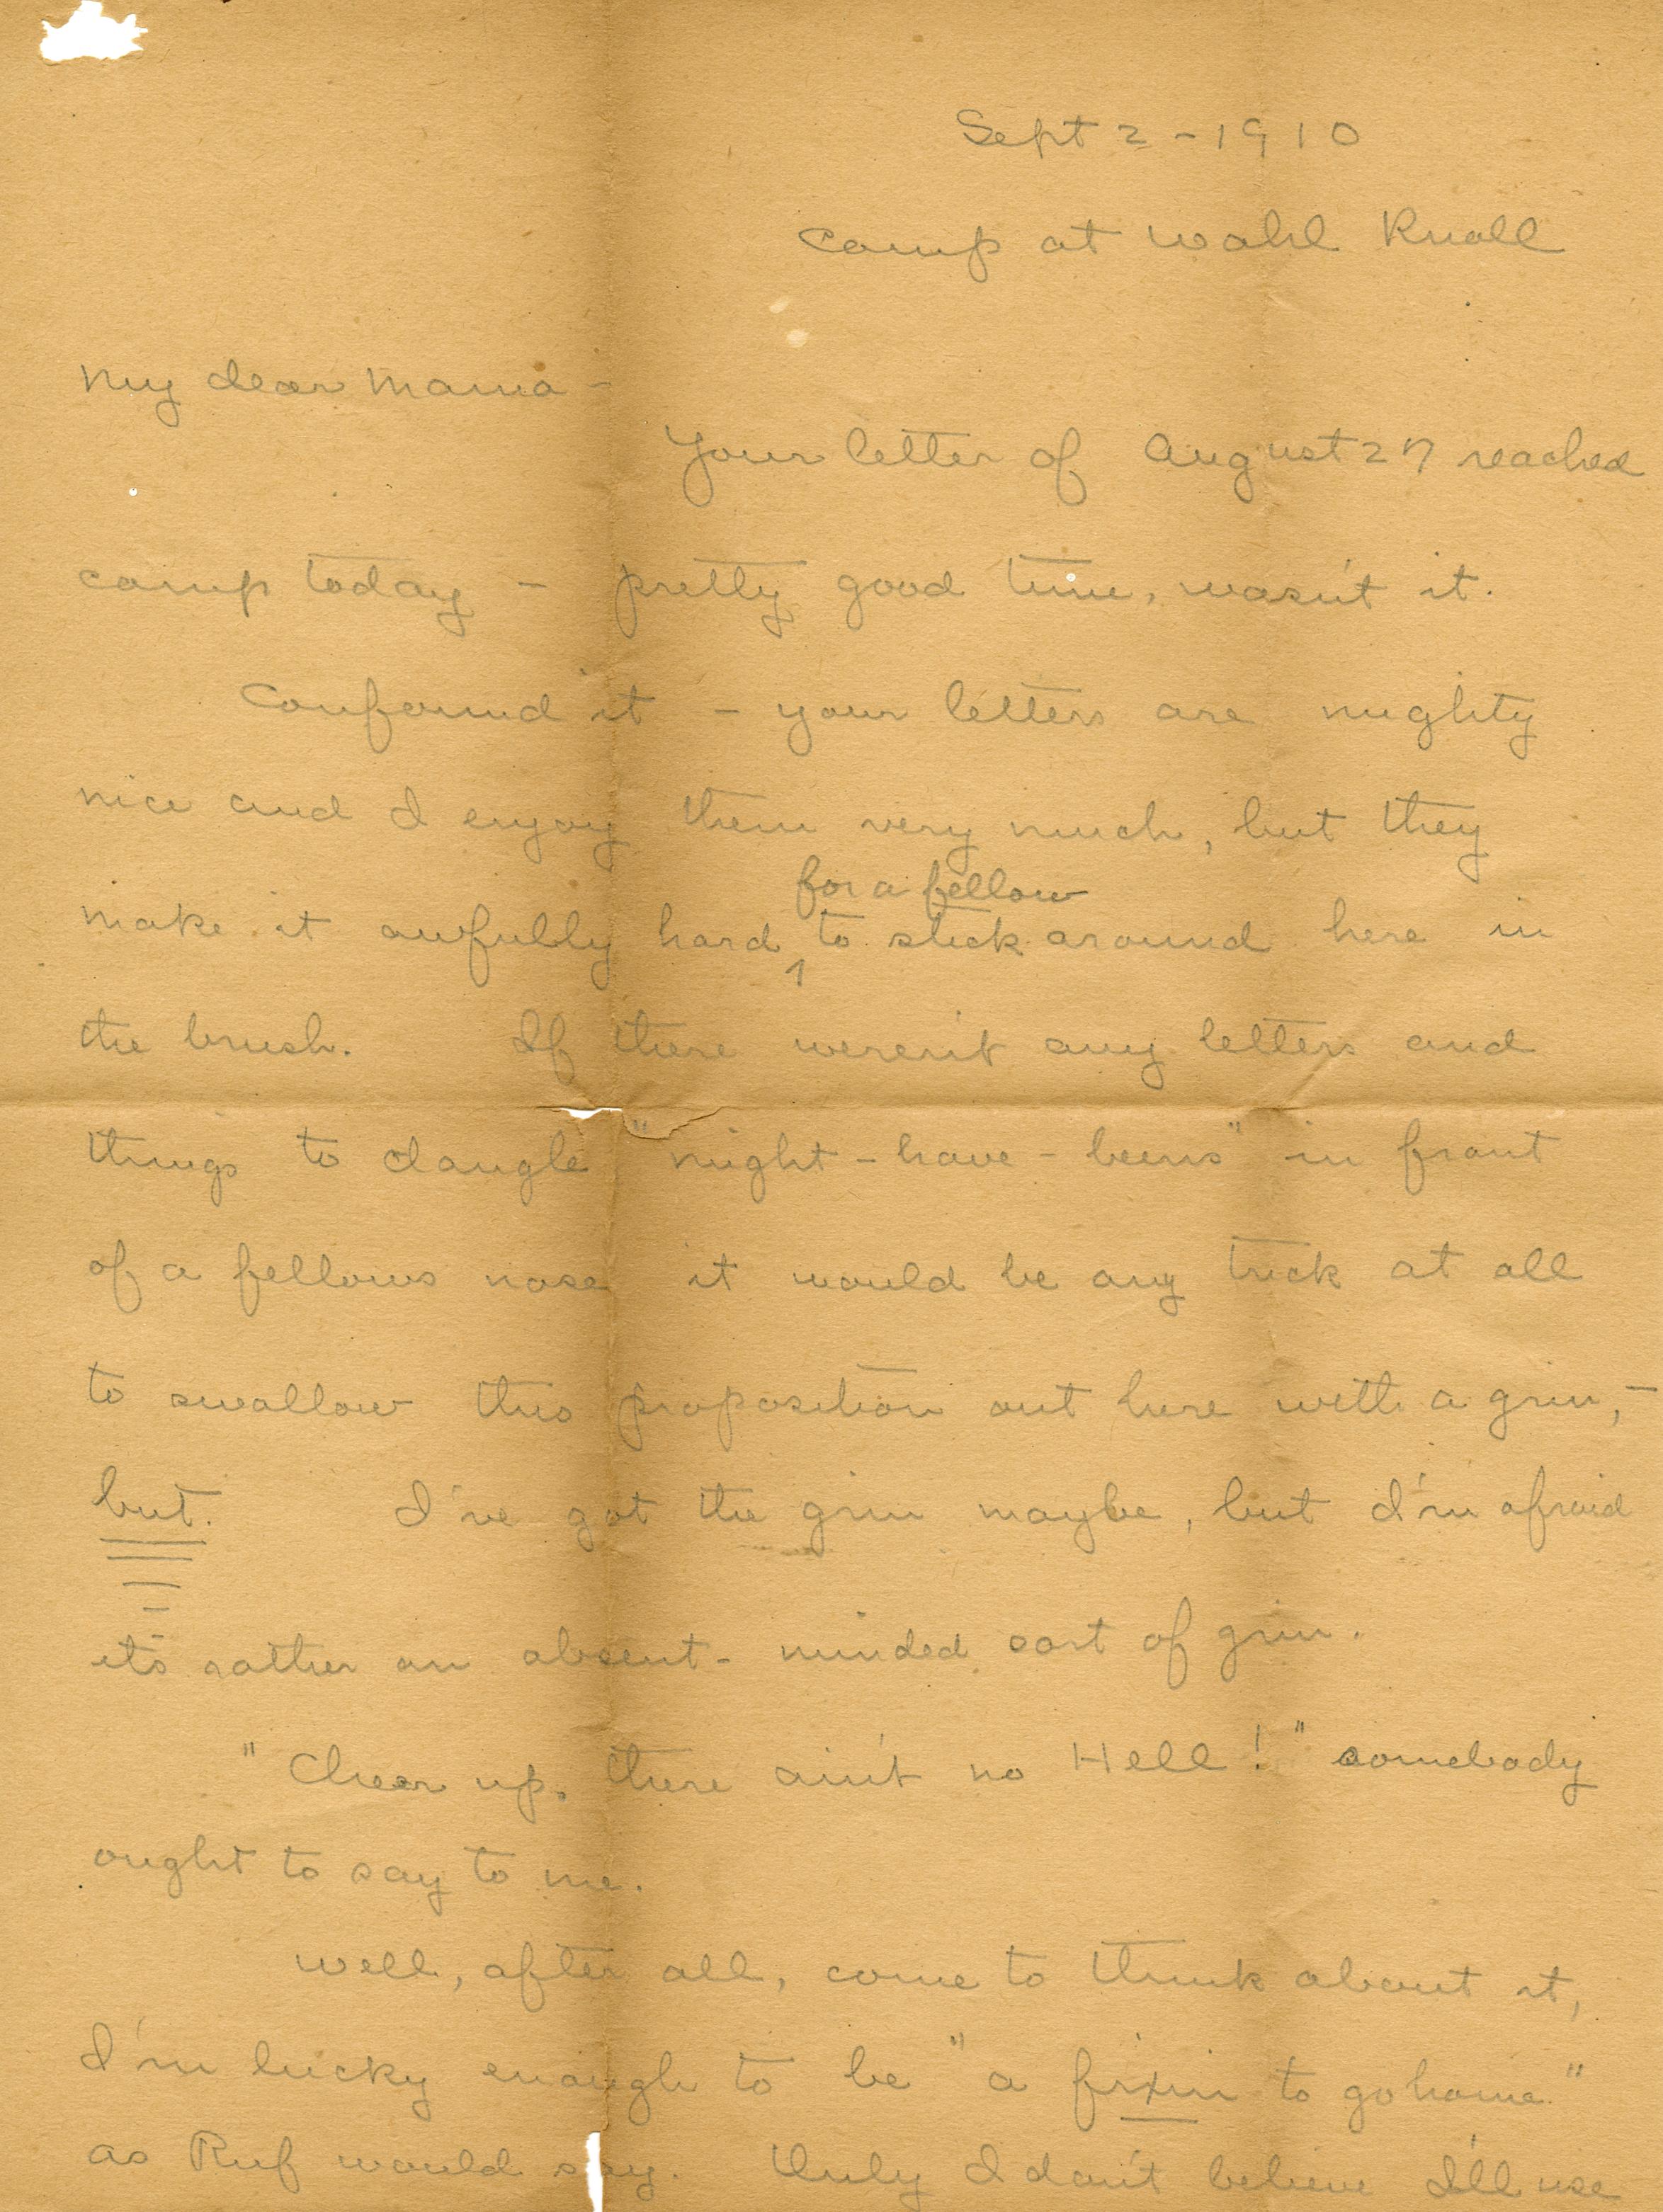 Sept 2 - 1910
Camp at Wahl Knoll
My dear Mama -
Your letter of August 27 reached
camp today - pretty good time, wasn't it.
Confound it - your letters are mighty
nice and I enjoy them very much, but they
for a fellow
make it awfully hard ^ to stick around here in
the brush. If there weren't any letters and
things to dangle "might-have-beens" in front
of a fellows nose it would be any trick at all
to swallow this proposition out here with a grin, -
but. I've got the grin maybe, but I'm afraid
its rather an absent-minded sort of grin.
"Cheer up, there ain't no Hell!" somebody
ought to say to me.
Well, after all, come to think about it,
I'm lucky enough to be "a fixin to go home."
as Ruf would say. Truly I don't believe I'll use